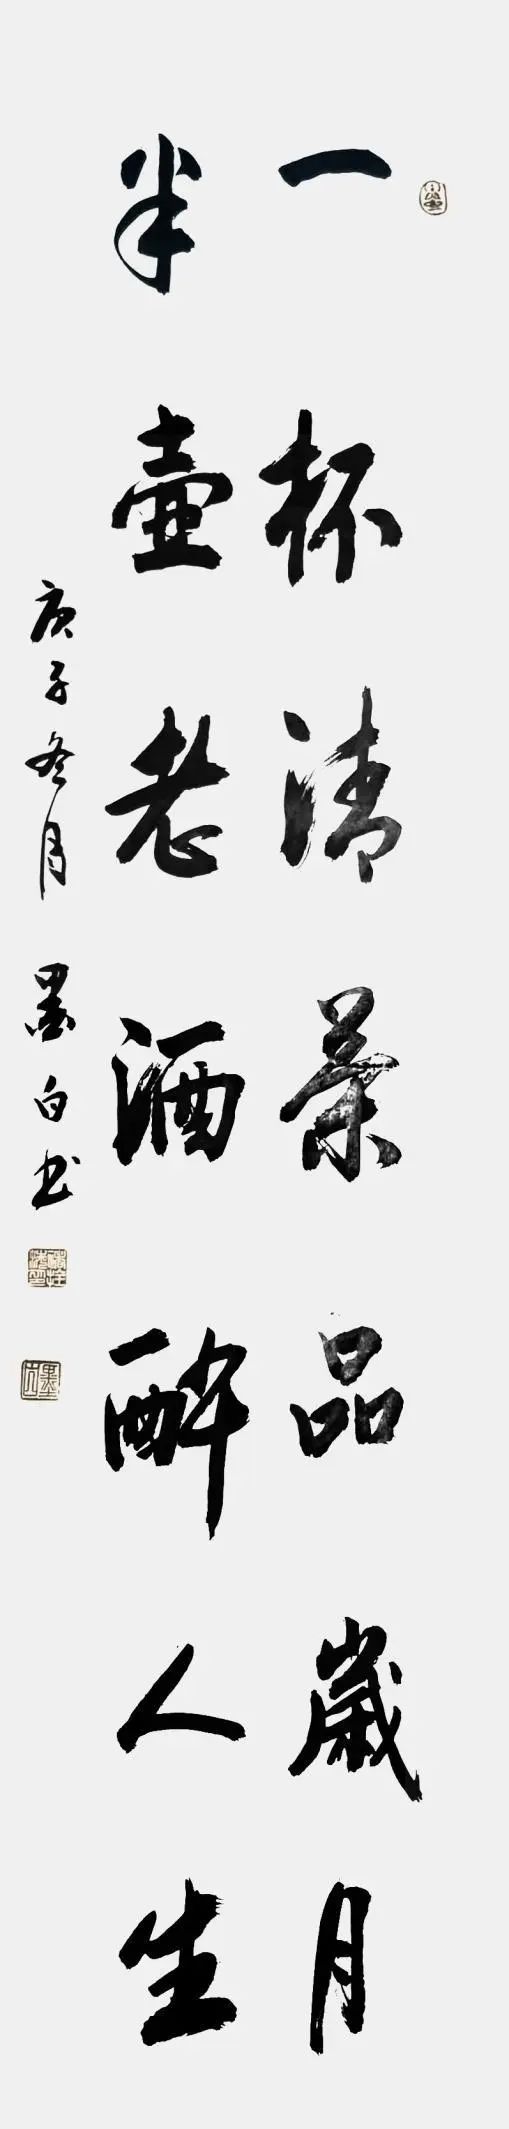 一杯清茶品歲月
半壺老酒醉人生
庚子冬月 墨白书